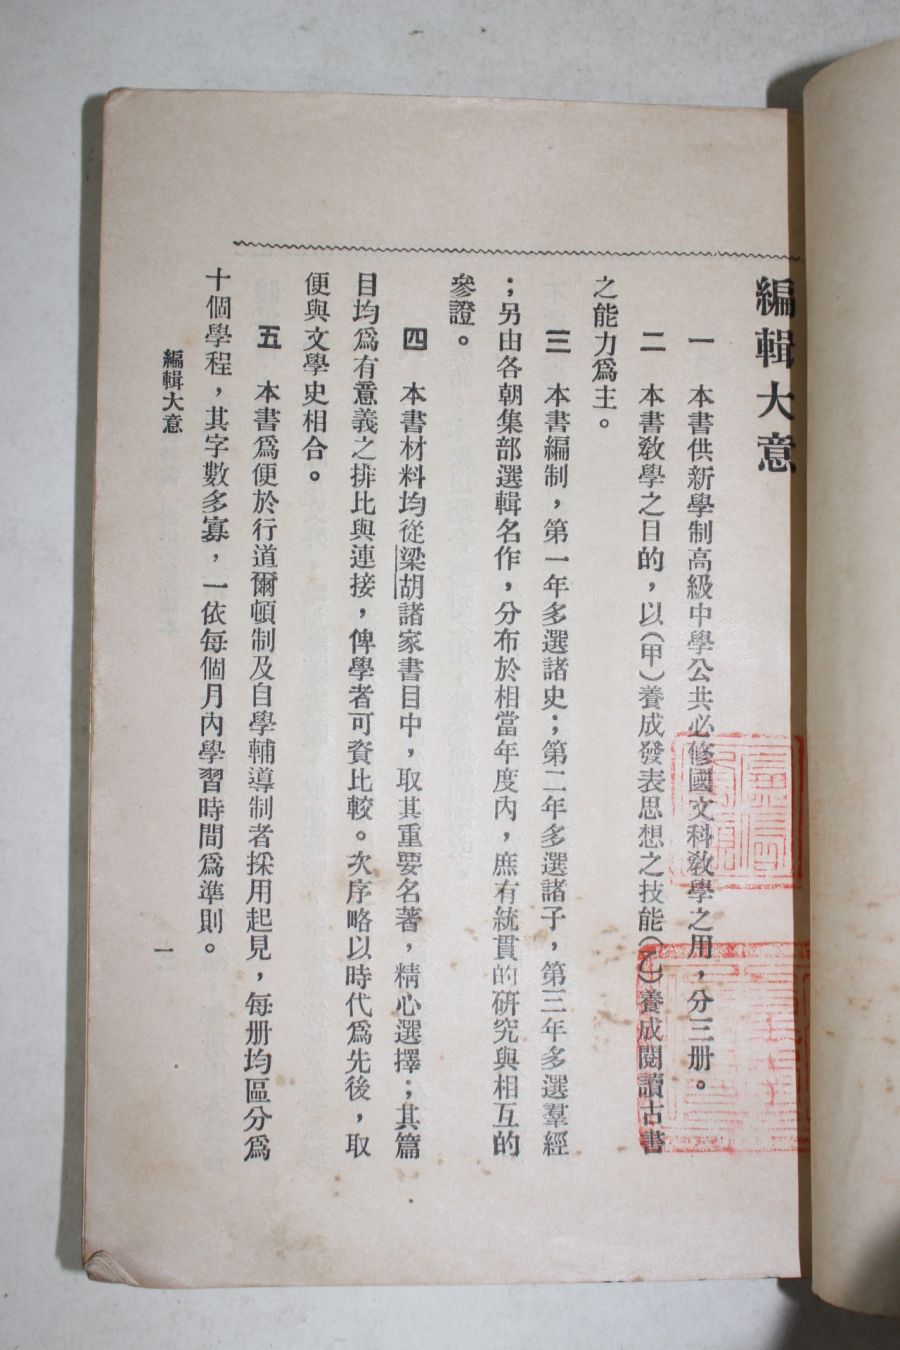 編輯大意
一　本書供新學制高級中學公共必修國文科敎學之用，分三册。
二　本書敎學之目的，以（甲）養成發表思想之技能（乙）養成閱讀古書
之能力爲主。
三　本書編制，第一年多選諸史；第二年多選諸子，第三年多選羣經
；另由各朝集部選輯名作，分布於相當年度內，庶有統貫的研究與相互的
參證。
四　本書材料均從梁胡諸家書目中，取其重要名著，精心選擇；其篇
目均爲有意義之排比與連接，俾學者可資比較。次序略以時代爲先後，取
便與文學史相合。
五　本書爲便於行道爾頓制及自學輔導制者採用起見，每册均區分爲
十個學程，其字數多寡，一依每個月內學習時間爲準則。
編輯大意
一